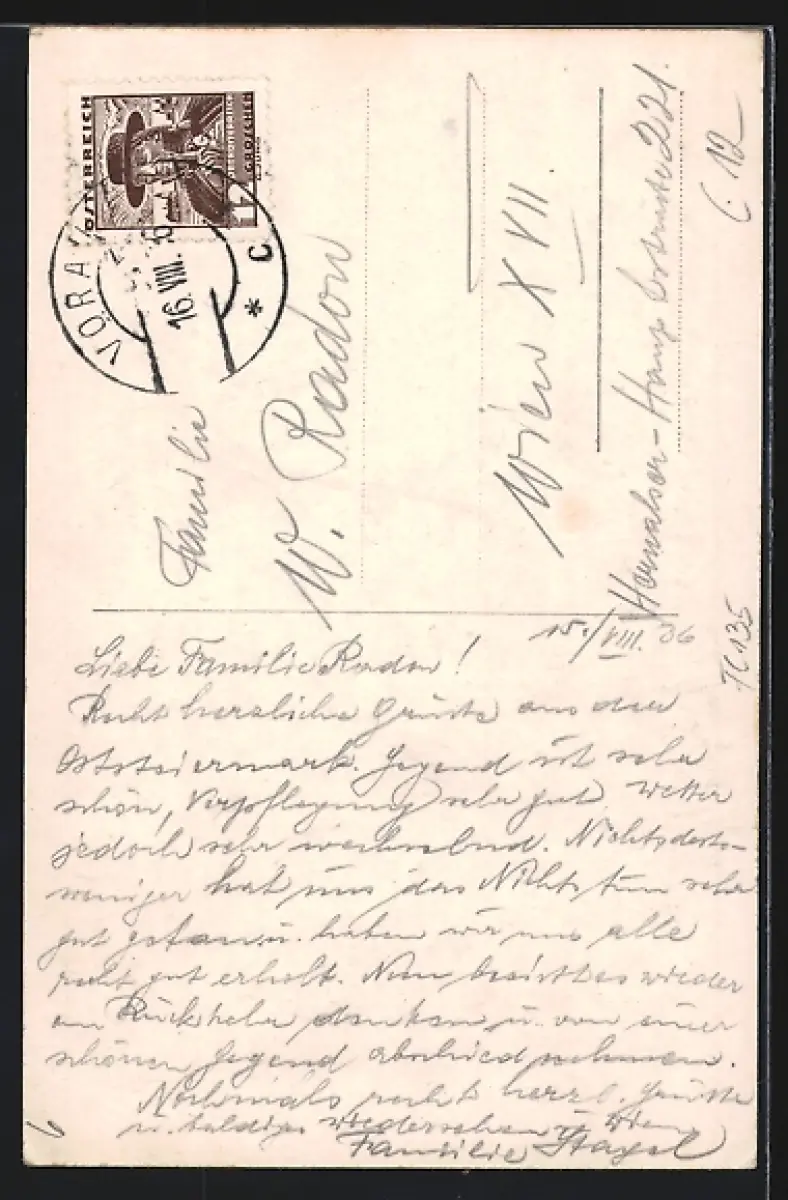 ÖSTERREICH
GROSCHEN
VORA
16. VIII.
* C
Familie
W. Radon
Wien XVII
Hernalser-Haupt 221
C 12
TC135
15./VIII. 36
Liebe Familie Radon!
Recht herzliche Grüsse aus der
Oststeiermark. Gegend ist sehr
schön, Verpflegung sehr gut, Wetter
jedoch sehr wechselnd. Nichtsdesto-
weniger hat uns das Nichtstun sehr
gut getan u. haben wir uns alle
recht gut erholt. Nun heisst es wieder
an Rückkehr denken u. von einer
schönen Gegend abschied nehmen.
Nochmals recht herzl. Grüsse
u. baldiges wiedersehen in Wien
Familie